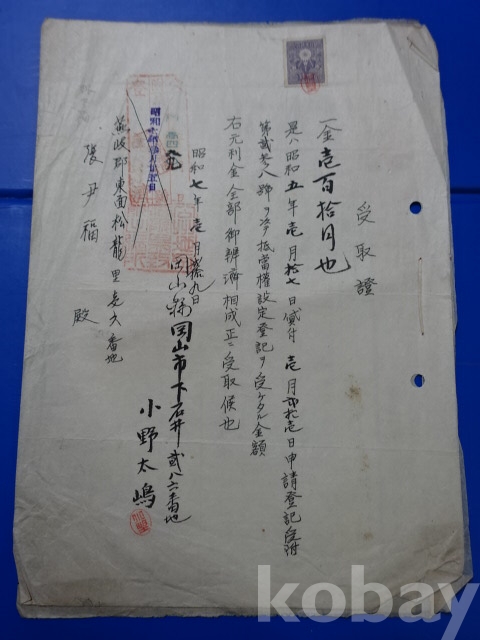 受取證
一金壱百拾円也
是ハ昭和五年壱月拾七日貸付 壱月弐拾壱日申請登記受附
第弐参八號ヲ以テ抵當權設定登記ヲ受ケタル金額
右元利金全部御辨濟相成正ニ受取候也
昭和七年壱月 九日
岡山縣岡山市下石井弐八六番地
小野太嶋
郡東面松龍里 番地
張尹福
殿
kobay